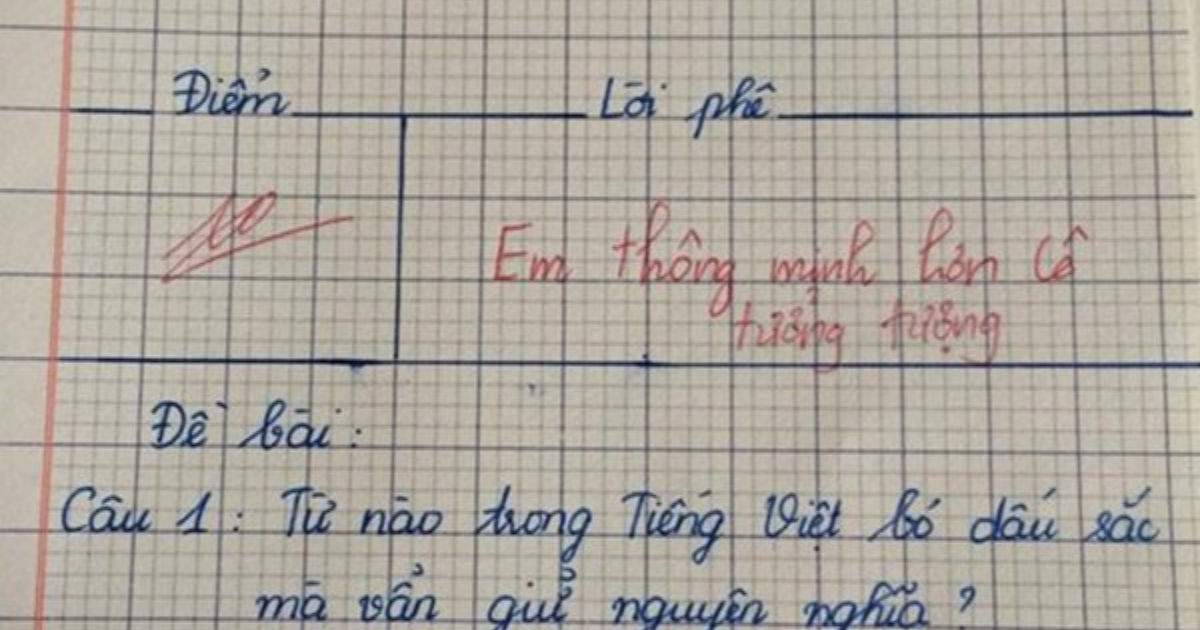 Điểm Lời phê
10 Em thông minh hơn cô
tưởng tượng
Đề bài:
Câu 1: Từ nào trong Tiếng Việt bỏ dấu sắc
mà vẫn giữ nguyên nghĩa?